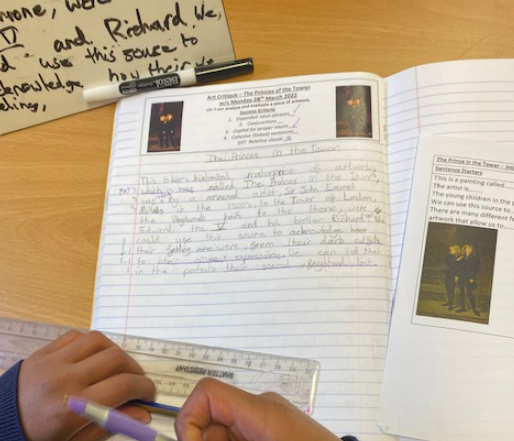 yone, were
V and Richard. We,
d use this source to
acknowledge how their
Berol
Art Critique – The Princes of the Tower
w/c Monday 28th March 2022
LO: I can analyse and evaluate a piece of artwork.
Success Criteria
1. Expanded noun phrases
2. Conjunctions
3. Capital for proper nouns
4. Cohesive (linked) sentences
EXT: Relative clause
The Princes in the Tower
This historical masterpiece of
which is called The Princes in the Tower,
was by a artist, Sir John Everett
Millais in the 1500's. In the Tower of London,
the heirs to the throne were
Edward the V and his brother Richard. We
could use this source to acknowledge how
their were, from their dark outside
to their expressions. We can tell that
in the their scared, frightend, but
SHATTER RESISTANT
The Prince in the Tower -
Sentence Starters
This is a painting called
The artist is....
The young children in the p
We can use this source to..
There are many different fe
artwork that allow us to...